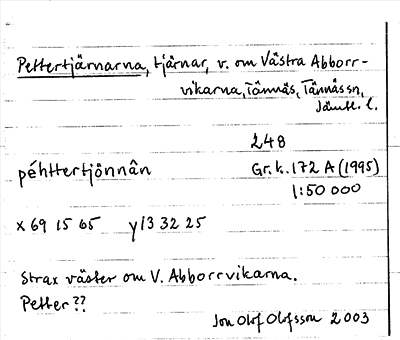 Pettertjärnarna, tjärnar, v. om Västra Abborr-
vikarna, Tännäs, Tännäs sn,
Jämtl. l.
248
péhttertjönnân
Gr. k. 172 A (1995)
1:50 000
x 69 15 65 y 13 32 25
Strax väster om V. Abborrvikarna.
Petter??
Jon Olof Olofsson 2003